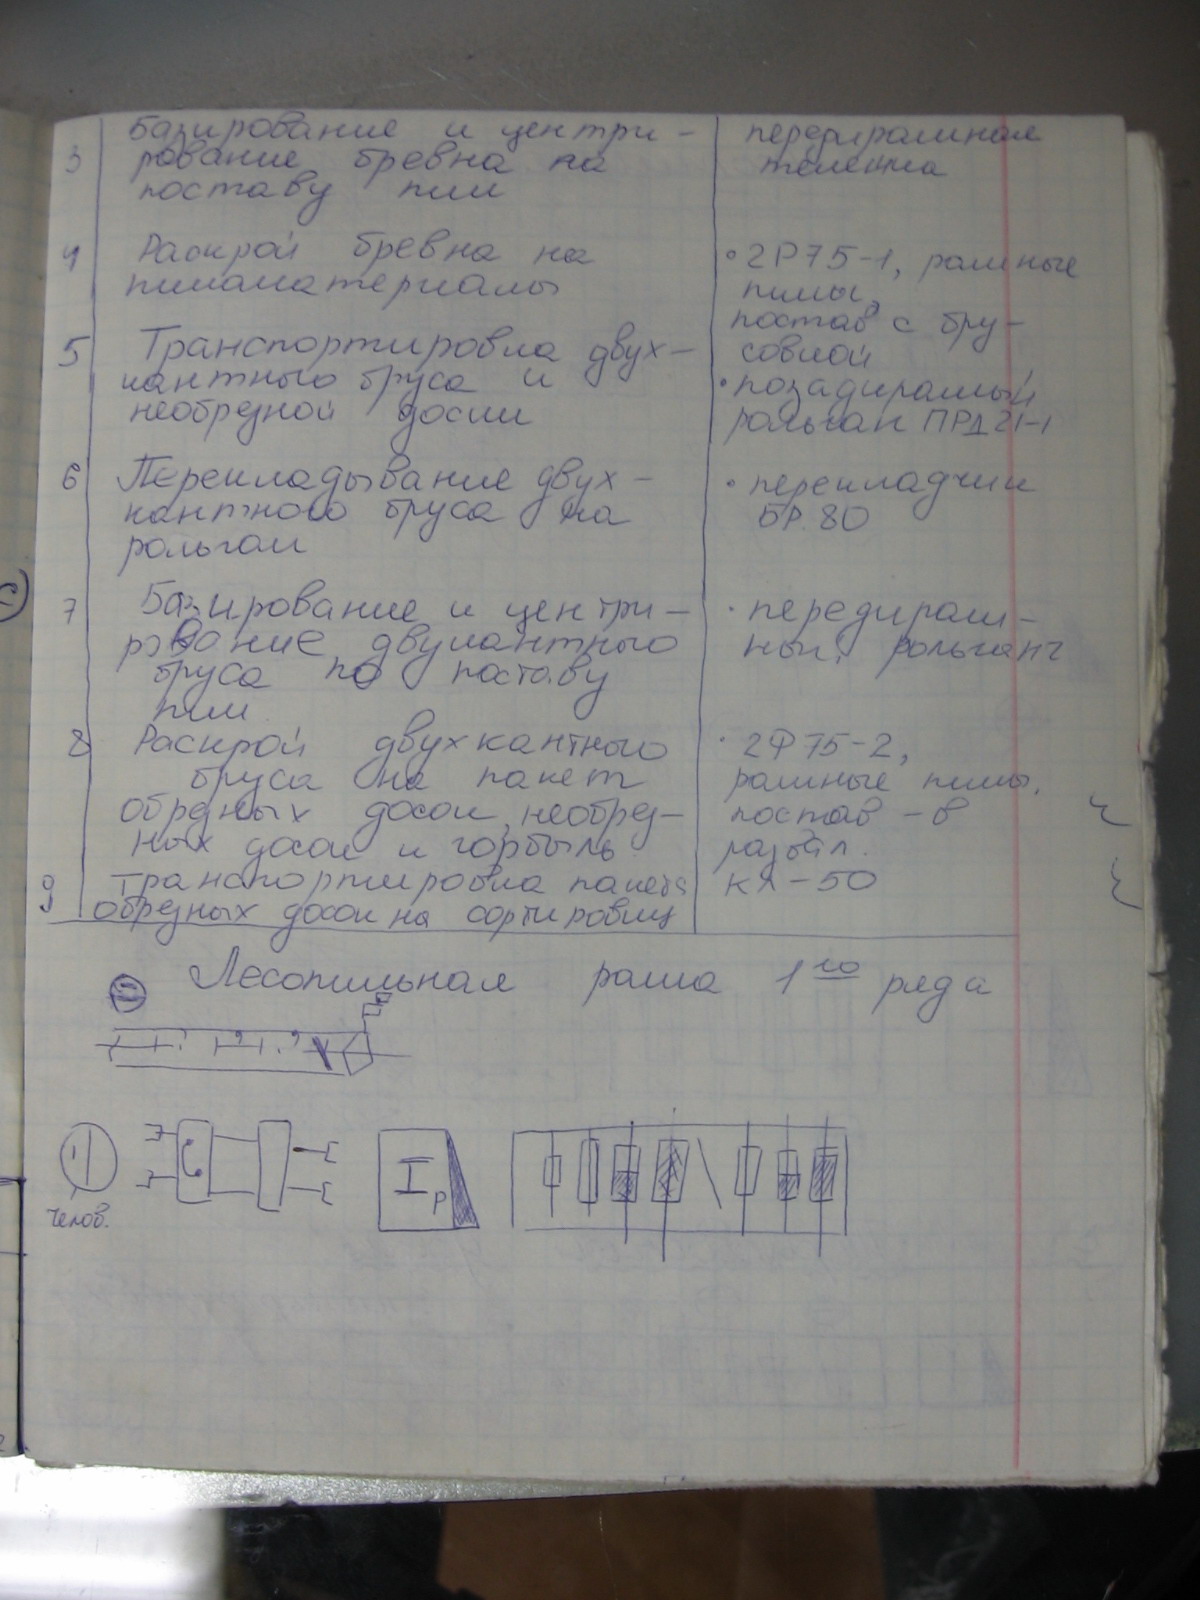 3 базирование и центри-
рование бревна на
поставу пил
передирамная
тележка
4 Раскрой бревна на
пиломатериалы
• 2Р75-1, рамные
пилы,
постав с бру-
совкой
5 Транспортировка двух-
кантного бруса и
необрезной доски
• позадирамый
рольган ПРД21-1
6 Перекладывание двух-
кантного бруса на
рольган
• перекладчик
БР.80
7 Базирование и центри-
рование двукантного
бруса по поставу
пил
• передирам-
ный рольганг
8 Раскрой двухкантного
бруса на пакет
обрезных досок, необрез-
ных досок и горбыль
• 2Ф75-2,
рамные пилы,
постав - в
развал.
9 транспортировка пакета
обрезных досок на сортировщ
КЛ-50
2 Лесопильная рама 1го ряда
1 I р
челов.